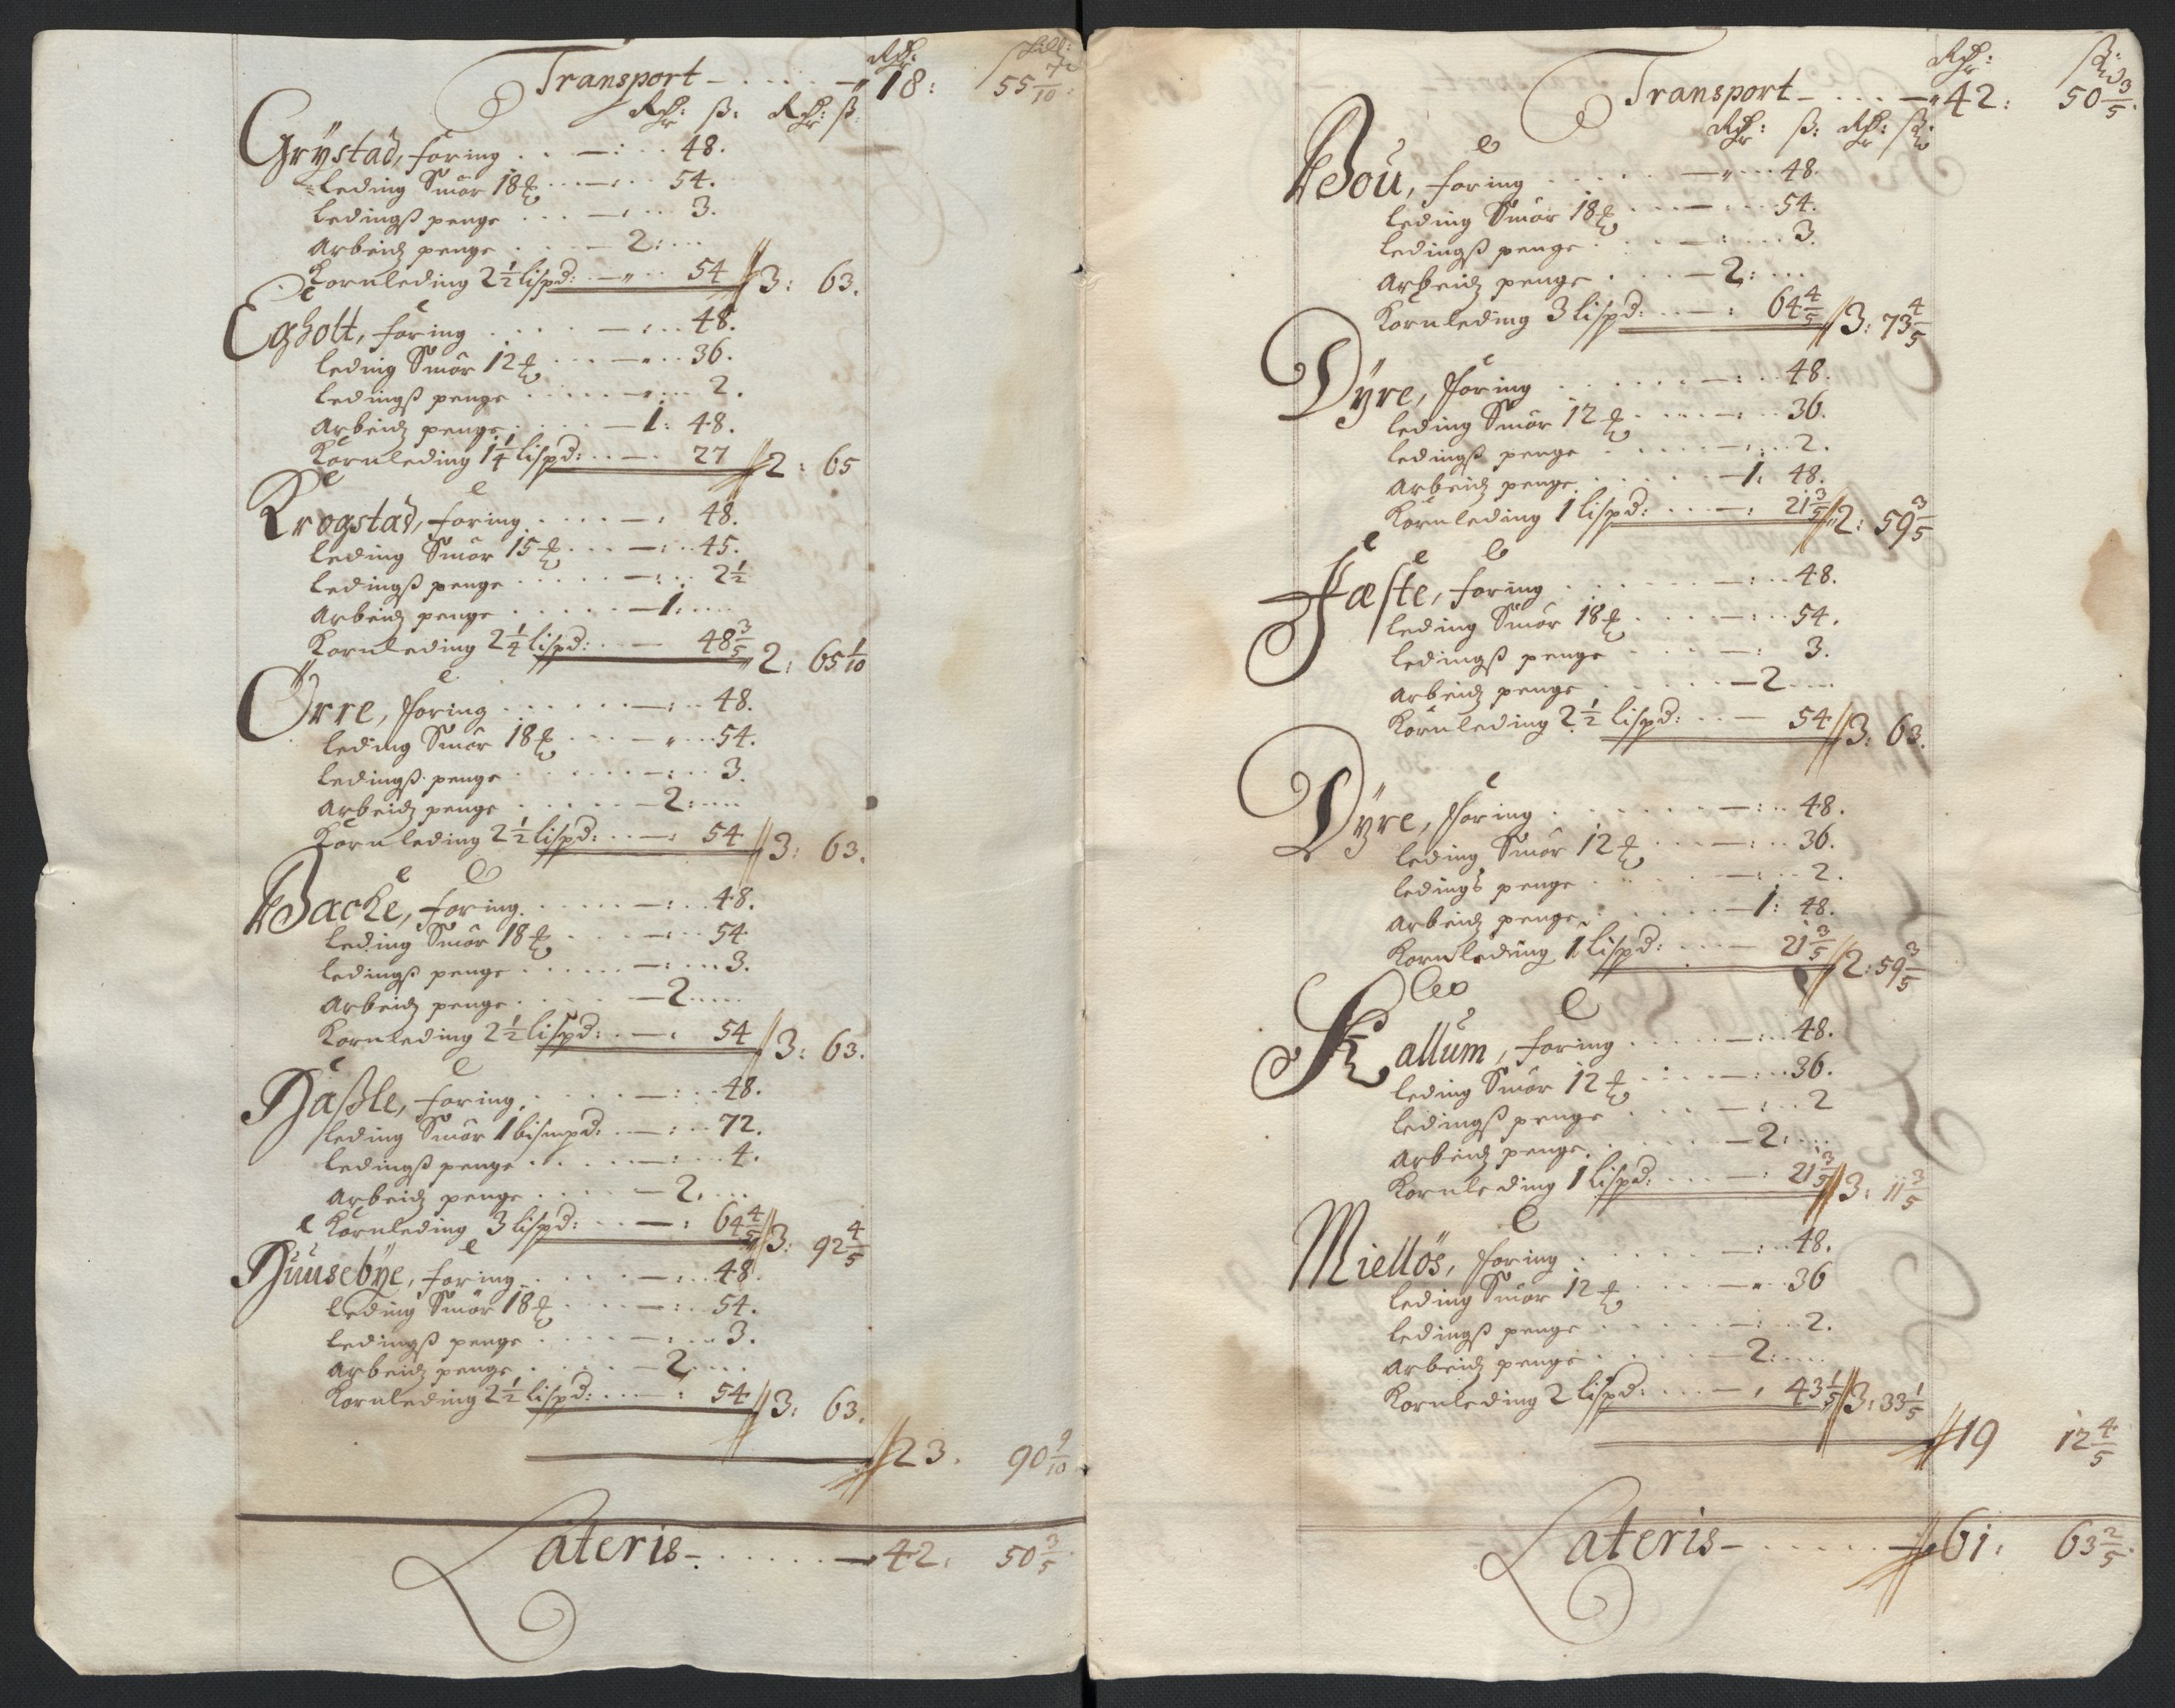 Rdr: Skill:
Transport - - - - - 18: 55 7/10
Rdr: ß: Rdr: ß:
Grÿstad, foring - - - 48.
leding Smör 18 ℔ - - - 54.
ledingß penge - - - 3.
Arbeidz penge - - - 2: - - -
Kornleding 2½ lispd: - - - 54 3: 63.
Egholt, foring - - - 48.
leding Smör 12 ℔ - - - 36.
ledingß penge - - - 2.
Arbeidz penge - - - 1: 48.
Kornleding 1¼ lispd: - - - 27 2: 65
Krogstad, foring - - - 48.
leding Smör 15 ℔ - - - 45.
ledingß penge - - - 2½
Arbeidz penge - - - 1: - - -
Kornleding 2¼ lispd: - - - 48 3/5 2: 65 1/10
Örre, foring - - - 48.
leding Smör 18 ℔ - - - 54.
ledingß penge - - - 3.
Arbeidz penge - - - 2: - - -
Kornleding 2½ lispd: - - - 54 3: 63.
Backe, foring - - - 48.
leding Smör 18 ℔ - - - 54
ledingß penge - - - 3.
Arbeidz penge - - - 2 - - -
Kornleding 2½ lispd: - - - 54 3: 63.
Haßle, foring - - - 48.
leding Smör 1 bismpd: - - - 72.
ledingß penge - - - 4.
Arbeidz penge - - - 2. - - -
Kornleding 3 lispd: - - - 64 4/5 3: 92 4/5
Huusebÿe, foring - - - 48.
leding Smör 18 ℔ - - - 54.
ledingß penge - - - 3.
Arbeidz penge - - - 2 - - -
Kornleding 2½ lispd: - - - 54 3: 63.
23. 90 9/10
Lateris - - - - - 42. 50 3/5
Rdr: ß:
Transport - - - - - 42: 50 3/5
Rdr: ß: Rdr: ß:
Bou, foring - - - 48.
leding Smör 18 ℔ - - - 54.
ledingß penge - - - 3.
Arbeidz penge - - - 2: - - -
Kornleding 3 lispd: - - - 64 4/5 3: 73 4/5
Dÿre, foring - - - 48.
leding Smör 12 ℔ - - - 36.
ledingß penge - - - 2.
Arbeidz penge - - - 1: 48.
Kornleding 1 lispd: - - - 21 3/5 2: 59 3/5
Fæste, foring - - - 48.
leding Smör 18 ℔ - - - 54.
ledingß penge - - - 3.
Arbeidz penge - - - 2 - - -
Kornleding 2½ lispd: - - - 54 3: 63.
Dÿre, foring - - - 48.
leding Smör 12 ℔ - - - 36.
ledings penge - - - 2.
Arbeidz penge - - - 1: 48.
Kornleding 1 lispd: - - - 21 3/5 2: 59 3/5
Kallum, foring - - - 48.
leding Smör 12 ℔ - - - 36.
ledingß penge - - - 2
Arbeidz penge - - - 2: - - -
Kornleding 1 lispd: - - - 21 3/5 3: 11 3/5
Miellös, foring - - - 48.
leding Smör 12 ℔ - - - 36
ledingß penge - - - 2.
Arbeidz penge - - - 2: - - -
Kornleding 2 lispd: - - - 43 1/5 3: 33 1/5
19 12 4/5
Lateris - - - - - 61: 63 2/5